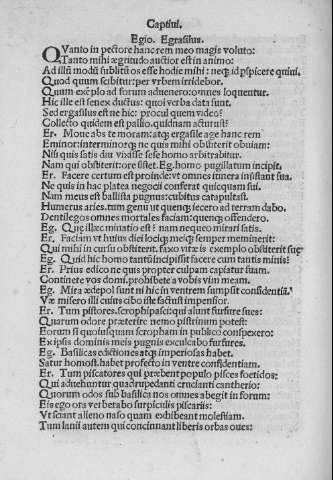 Captiui.
Egio. Egrasilus.
QVanto in pectore hanc rem meo magis voluto:
Tanto mihi ægritudo auctior est in animo:
Ad illũ modũ sublitũ os esse hodie mihi: neqꝫ id pspicere quiui.
Quod quum scibitur: per vrbem irridebor.
Quum ex ẽplo ad forum aduenero: omnes loquentur.
Hic ille est senex ductus: quoi verba data sunt.
Sed ergasilus est ne hic: procul quem video?
Collecto quidem est pallio. quidnam acturust?
Er. Moue abs te moram: atqꝫ ergasile age hanc rem
Eminor: interminorqꝫ ne quis mihi obstiterit obuiam:
Nisi quis satis diu vixisse sese homo arbitrabitur.
Nam qui obstiterit: ore sistet. Eg. homo pugillatum incipit.
Er. Facere certum est proinde: vt omnes itinera insistant sua.
Ne quis in hac platea negocii conferat quicquam sui.
Nam meus est ballista pugnus: cubitus catapultast.
Humerus aries. tum genu vt quenqꝫ iecero ad terram dabo.
Dentilegos omnes mortales faciam: quemqꝫ offendero.
Eg. Quę illæc minatio est? nam nequeo mirari satis.
Er. Faciam vt huius diei lociqꝫ meiqꝫ semper meminerit:
Qui mihi in cursu obstiterit. faxo vitæ is exemplo obstiterit suę
Eg. Quid hic homo tantũ incipissit facere cum tantis minis?
Er. Prius edico ne quis propter culpam capiatur suam.
Continete vos domi. prohibete a vobis vim meam.
Eg. Mira ædepol sunt ni hic in ventrem sumpsit confidentiã.
Væ misero illi cuius cibo iste factust impensior.
Er. Tum pistores. scrophipasci: qui alunt furfure sues:
Quarum odore præterire nemo pistrinum potest:
Eorum si quoiusquam scropham in publico conspexero:
Ex ipsis dominis meis pugnis exculcabo furfures.
Eg. Basilicas edictiones atqꝫ imperiosas habet.
Satur homost. habet profecto in ventre confidentiam.
Er. Tum piscatores qui præbent populo pisces foetidos:
Qui aduehuntur quadrupedanti crucianti cantherio:
Quorum odos sub basilica nos omnes abegit in forum:
Eis ego ora verberabo surpiculis piscariis:
Vt sciant alieno naso quam exhibeant molestiam.
Tum lanii autem qui concinnant liberis orbas oues: